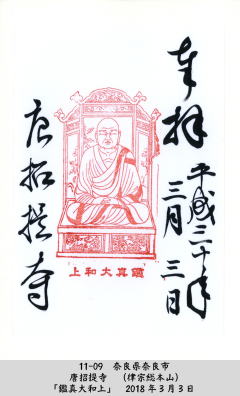 奉拝
平成三十年
三月三日
上和大真鑑
唐招提寺
11-09　奈良県奈良市
唐招提寺　（律宗総本山）
「鑑真大和上」　2018年3月3日